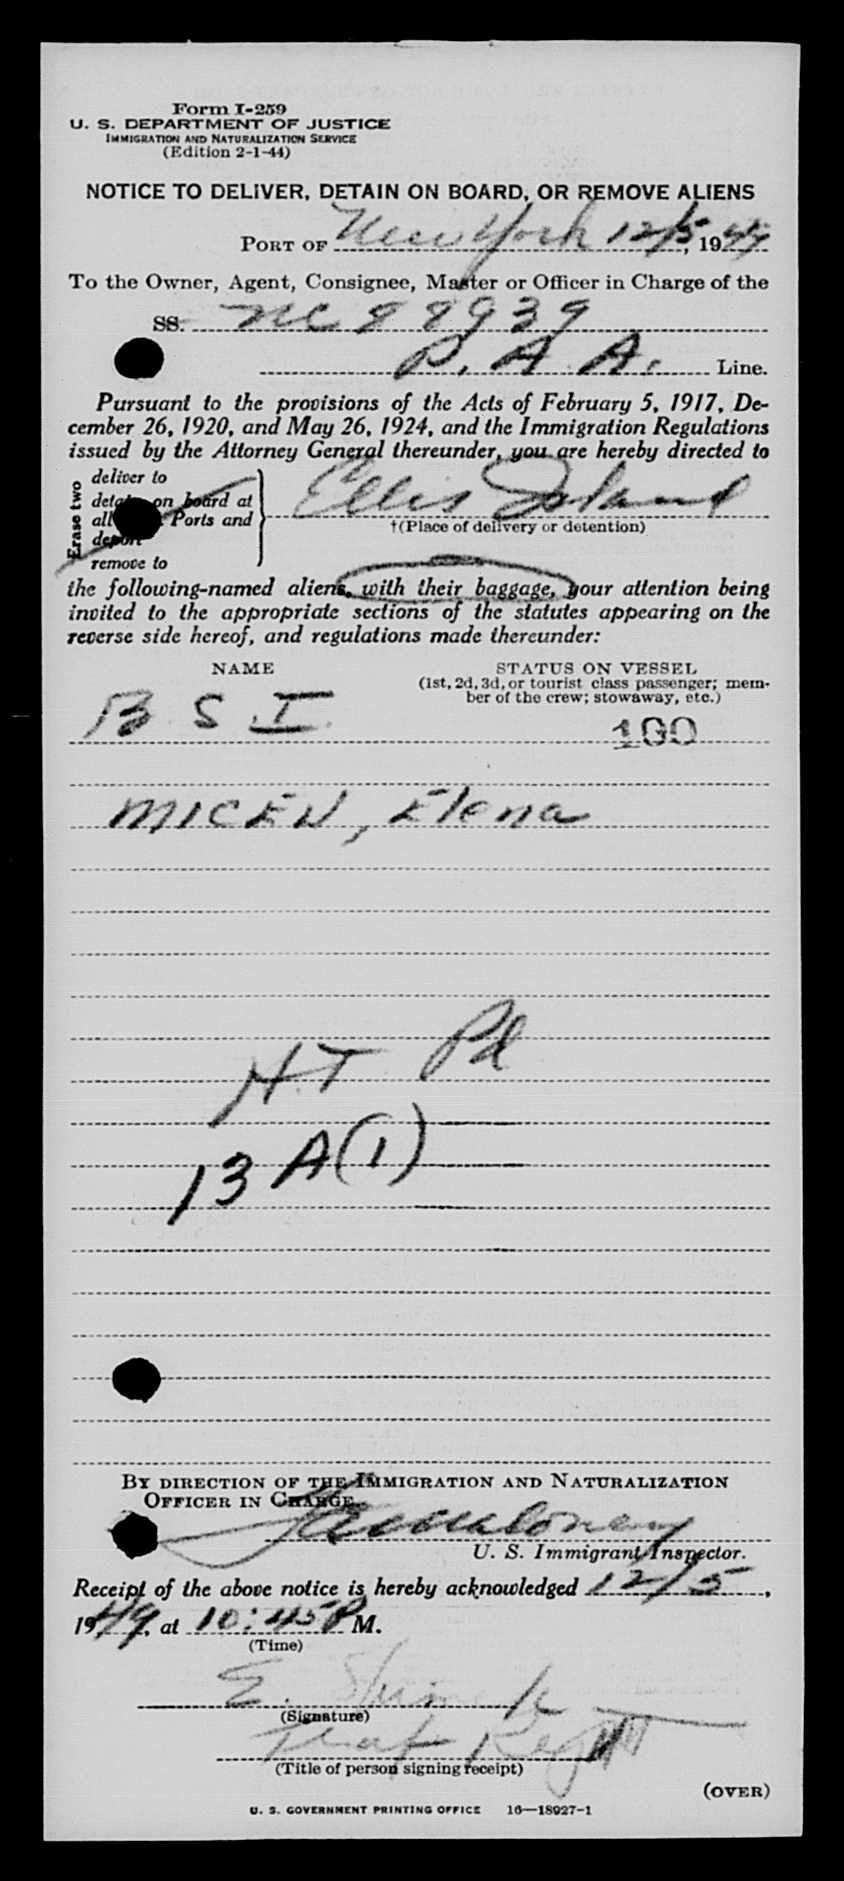 Form I-259
U. S. DEPARTMENT OF JUSTICE
IMMIGRATION AND NATURALIZATION SERVICE
(Edition 2-1-44)
NOTICE TO DELIVER, DETAIN ON BOARD, OR REMOVE ALIENS
PORT OF New York 12/5, 1949
To the Owner, Agent, Consignee, Master or Officer in Charge of the
SS. NC 88939
P. A. A. Line.
Pursuant to the provisions of the Acts of February 5, 1917, De-
cember 26, 1920, and May 26, 1924, and the Immigration Regulations
issued by the Attorney General thereunder, you are hereby directed to
Erase two
deliver to
detain on board at
all Ports and
deport
remove to
Ellis Island
†(Place of delivery or detention)
the following-named aliens, with their baggage, your attention being
invited to the appropriate sections of the statutes appearing on the
reverse side hereof, and regulations made thereunder:
NAME
STATUS ON VESSEL
(1st, 2d, 3d, or tourist class passenger; mem-
ber of the crew; stowaway, etc.)
B S I
100
MICEU, Elena
H.T Pd
13 A(1)
BY DIRECTION OF THE IMMIGRATION AND NATURALIZATION
OFFICER IN CHARGE.
U. S. Immigrant Inspector.
Receipt of the above notice is hereby acknowledged 12/5,
1949, at 10:45 P M.
(Time)
E.
(Signature)
(Title of person signing receipt)
(OVER)
U. S. GOVERNMENT PRINTING OFFICE 16—18927-1